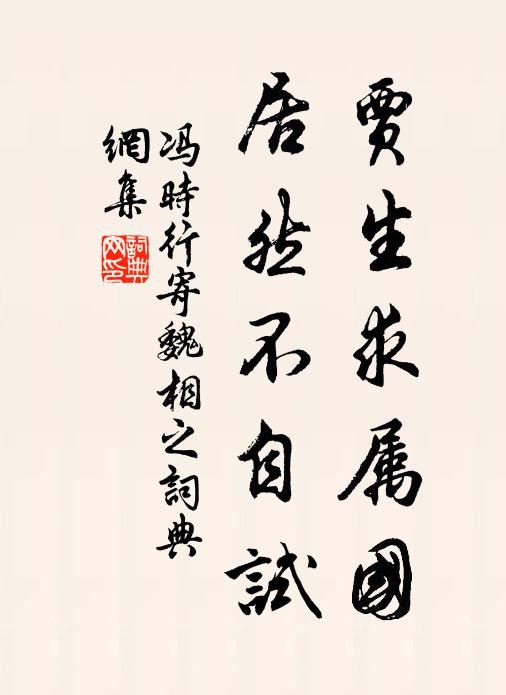 賈生求属國
居然不自試
馮時行寄魏相之詞典
網集
詞典網印